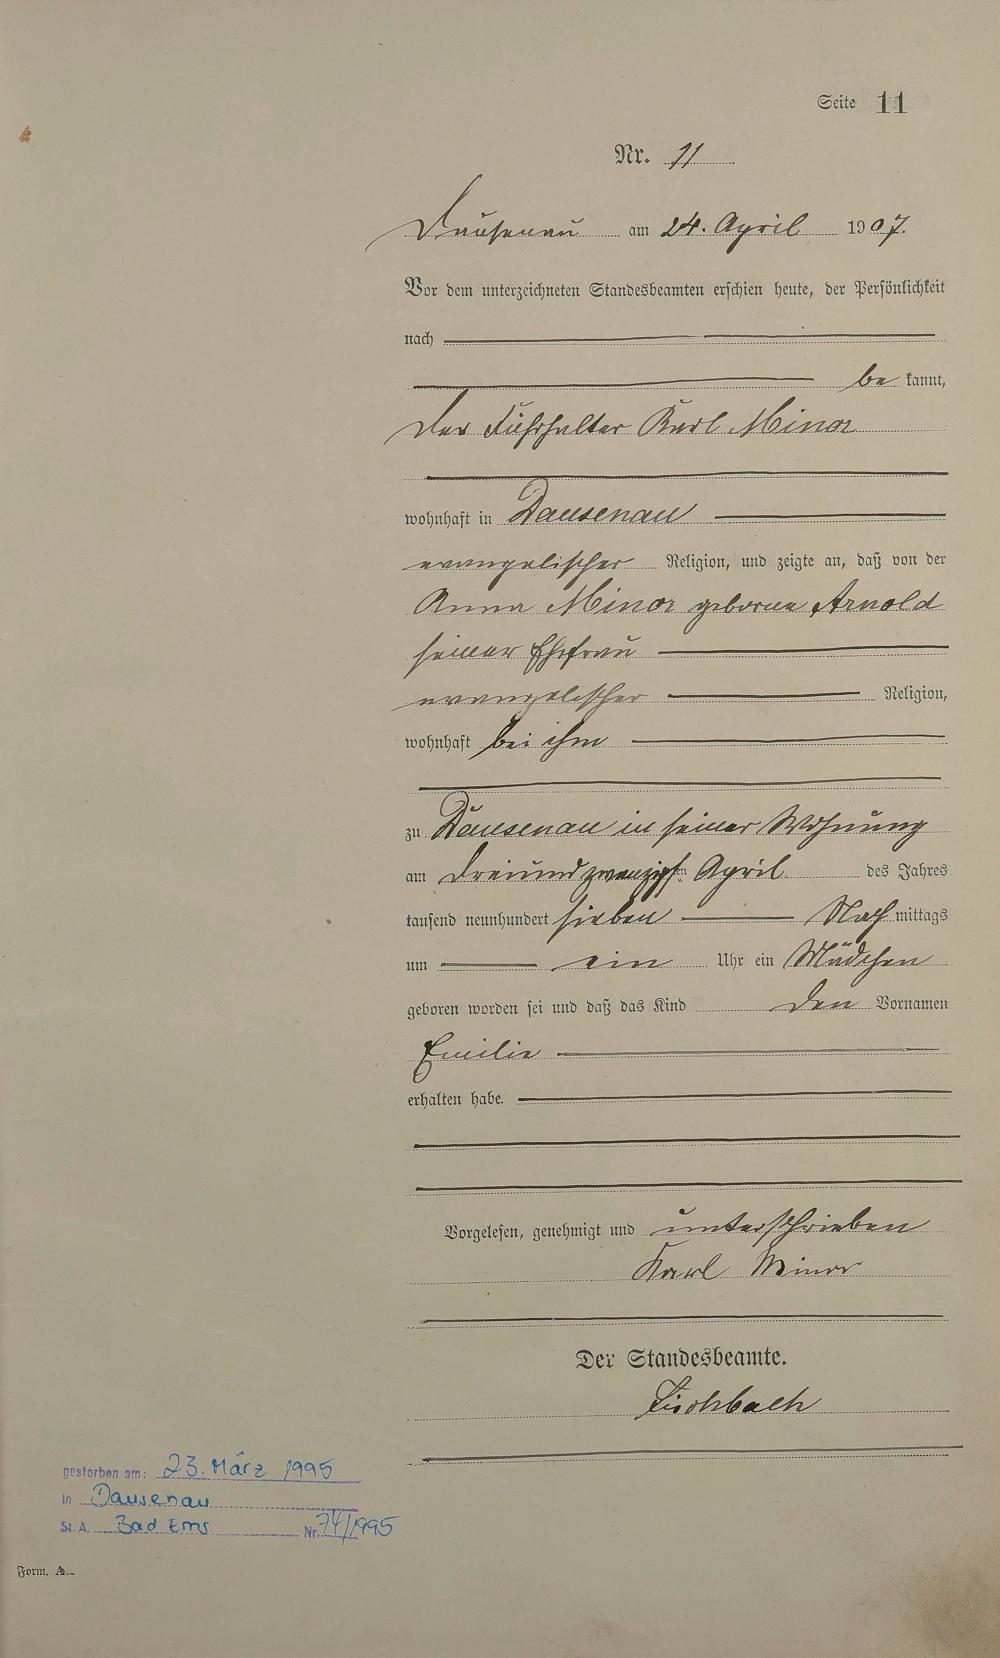 Seite 11
Nr. 11
Dausenau am 24. April 1907.
Vor dem unterzeichneten Standesbeamten erschien heute, der Persönlichkeit
nach
be kannt,
der Fuhrhalter Karl Minor
wohnhaft in Dausenau
evangelischer Religion, und zeigte an, daß von der
Anna Minor geborne Arnold
seiner Ehefrau
evangelischer Religion,
wohnhaft bei ihm
zu Dausenau in seiner Wohnung
am dreiundzwanzigsten April des Jahres
tausend neunhundert sieben Nach mittags
um ein Uhr ein Mädchen
geboren worden sei und daß das Kind den Vornamen
Emilie
erhalten habe.
Vorgelesen, genehmigt und unterschrieben
Karl Minor
Der Standesbeamte.
Fischbach
gestorben am: 23. März 1995
in Dausenau
St. A. Bad Ems Nr. 74/1995
Form. A.